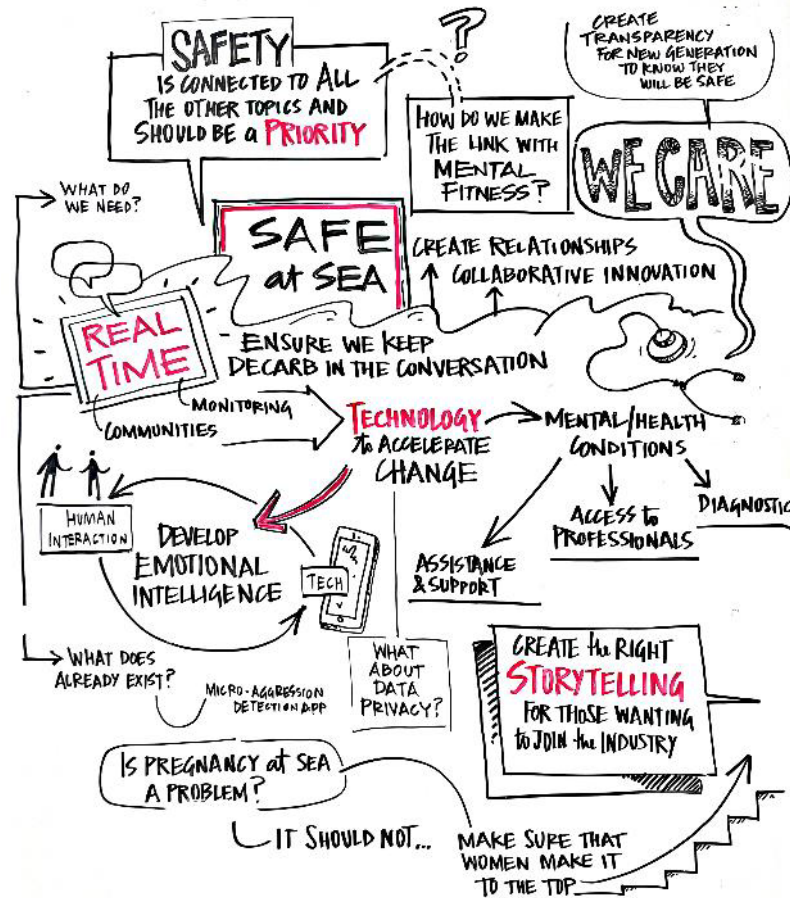 SAFETY
IS CONNECTED TO ALL
THE OTHER TOPICS AND
SHOULD BE a PRIORITY
?
HOW DO WE MAKE
THE LINK WITH
MENTAL
FITNESS?
CREATE
TRANSPARENCY
FOR NEW GENERATION
TO KNOW THEY
WILL BE SAFE
WE CARE
WHAT DO
WE NEED?
SAFE
at SEA
CREATE RELATIONSHIPS
COLLABORATIVE INNOVATION
REAL
TIME
- ENSURE WE KEEP
DECARB IN THE CONVERSATION
MONITORING
COMMUNITIES
TECHNOLOGY
to ACCELERATE
CHANGE
MENTAL/HEALTH
CONDITIONS
ASSISTANCE
& SUPPORT
ACCESS to
PROFESSIONALS
DIAGNOSTIC
HUMAN
INTERACTION
DEVELOP
EMOTIONAL
INTELLIGENCE
TECH
WHAT DOES
ALREADY EXIST?
MICRO-AGGRESSION
DETECTION APP
WHAT
ABOUT
DATA
PRIVACY?
CREATE the RIGHT
STORYTELLING
FOR THOSE WANTING
to JOIN the INDUSTRY
IS PREGNANCY at SEA
A PROBLEM?
IT SHOULD NOT...
MAKE SURE THAT
WOMEN MAKE IT
TO THE TOP